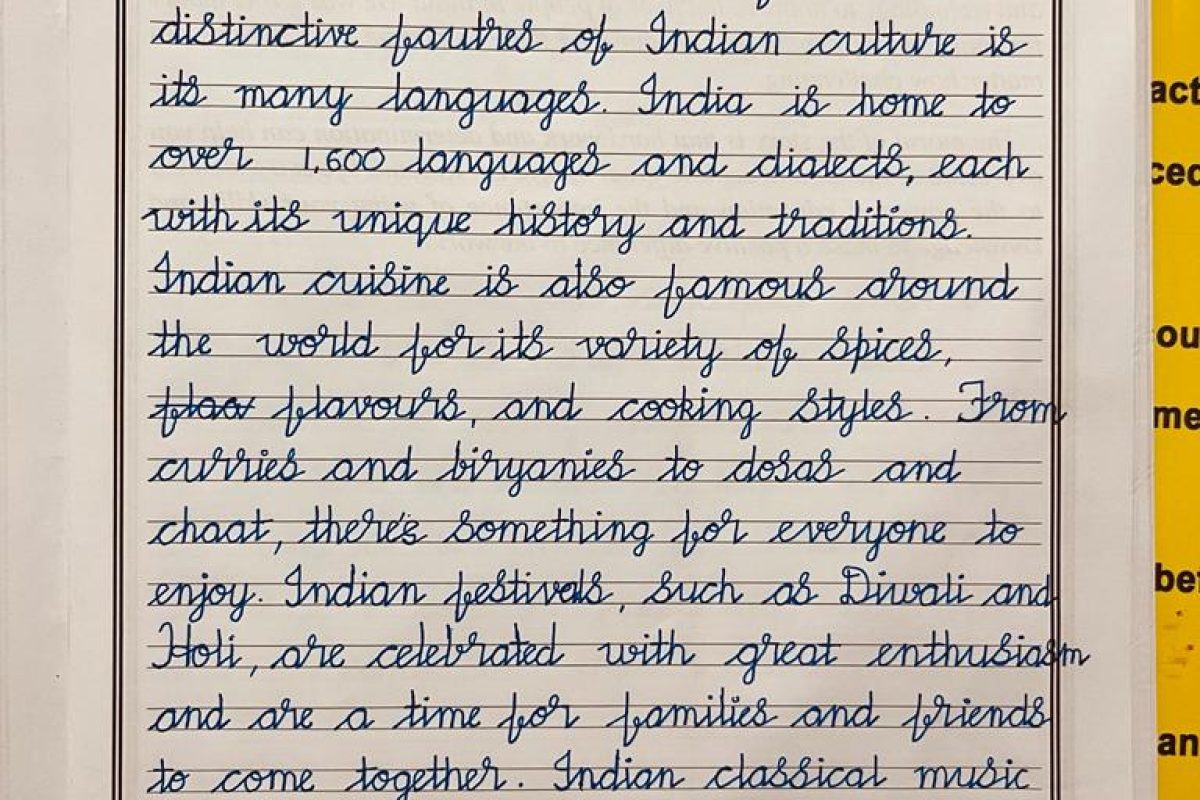 distinctive fautres of Indian culture is
its many languages. India is home to
over 1,600 languages and dialects, each
with its unique history and traditions.
Indian cuisine is also famous around
the world for its variety of spices,
flav flavours, and cooking styles. From
curries and biryanies to dosas and
chaat, there's something for everyone to
enjoy. Indian festivals, such as Diwali and
Holi, are celebrated with great enthusiasm
and are a time for families and friends
to come together. Indian classical music
act
ced
ou
me
be
an